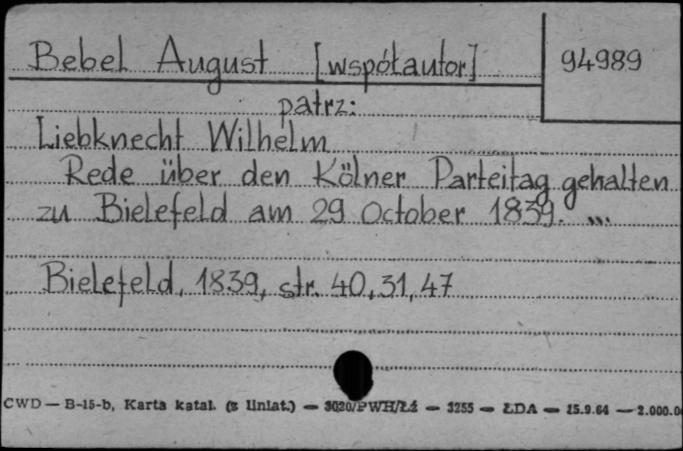 Bebel August [współautor] 94989
patrz:
Liebknecht Wilhelm
Rede über den Kölner Parteitag gehalten
zu Bielefeld am 29 October 1839. ...
Bielefeld, 1839, str. 40, 31, 47
CWD — B-15-b, Karta katal. (z liniat.) — 3020/PWH/Łź — 3255 — ŁDA — 15.9.64 — 2.000.0